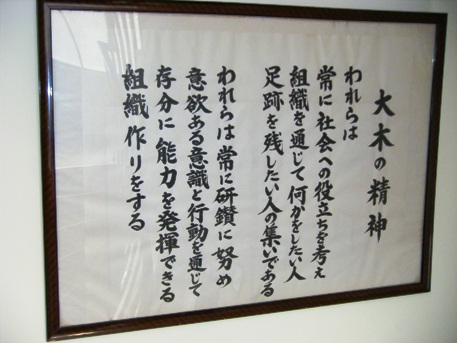 大木の精神
われらは
常に社会への役立ちを考え
組織を通じて何かをしたい人
足跡を残したい人の集いである
われらは常に研鑚に努め
意欲ある意識と行動を通じて
存分に能力を発揮できる
組織作りをする